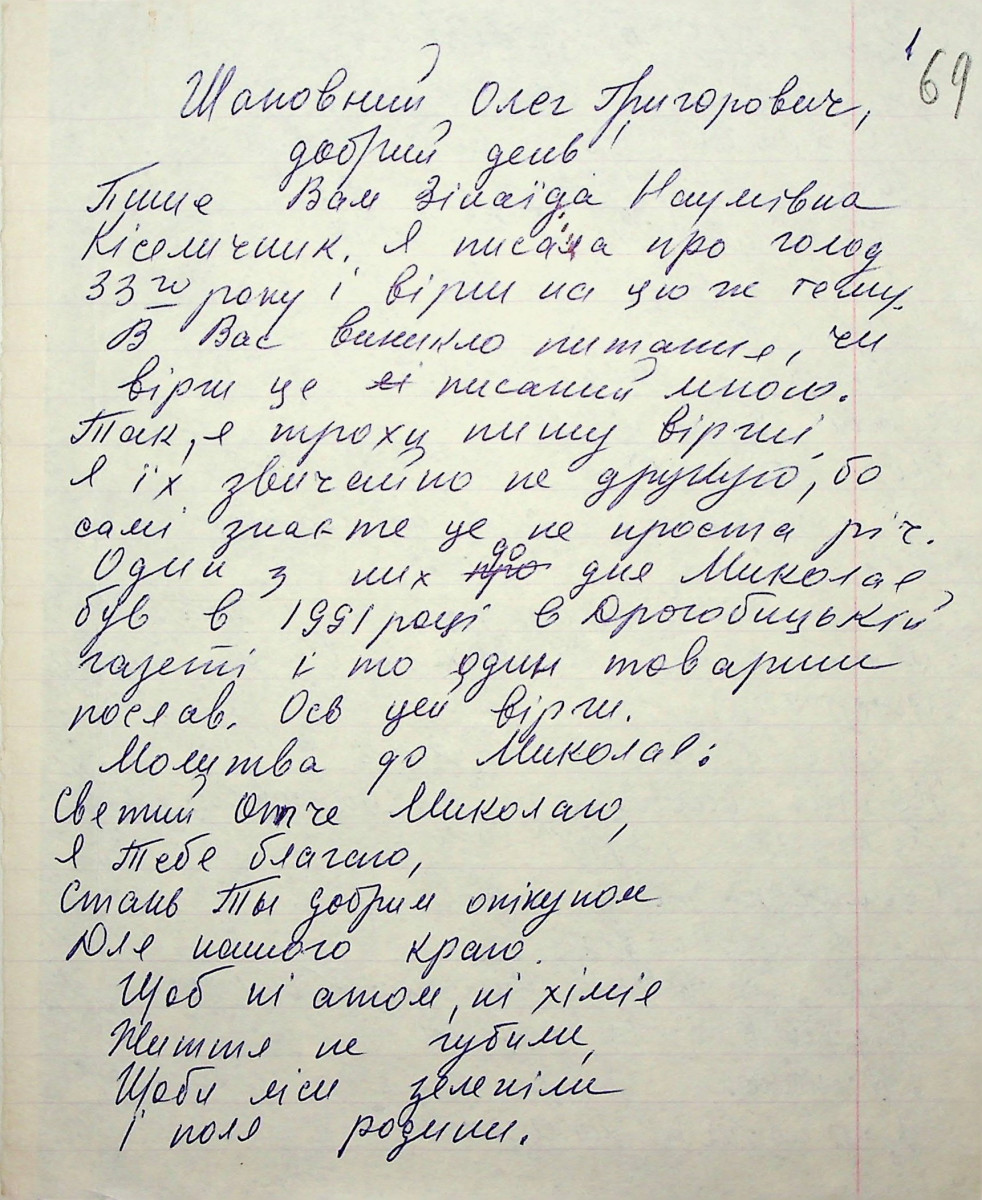 1 69
Шановний Олег Григорович,
добрий день!
Пише Вам Зінаїда Наумівна
Кісельчник. Я писала про голод
33го року і вірш на цю ж тему.
В Вас виникло питання, чи
вірш це писаний мною.
Так, я троху пишу вірші,
Я їх звичайно не друкую, бо
самі знаєте це не проста річ.
Один з них про до дня Миколая
був в 1991 році в Дрогобицькій
газеті і то один товариш
послав. Ось цей вірш.
Молитва до Миколая:
Святий Отче Миколаю,
Я Тебе благаю,
Стань Ты добрим опікуном
Для нашого краю.
Щоб ні атом, ні хімія
Життя не губили,
Щоби ліси зеленіли
І поля родили.